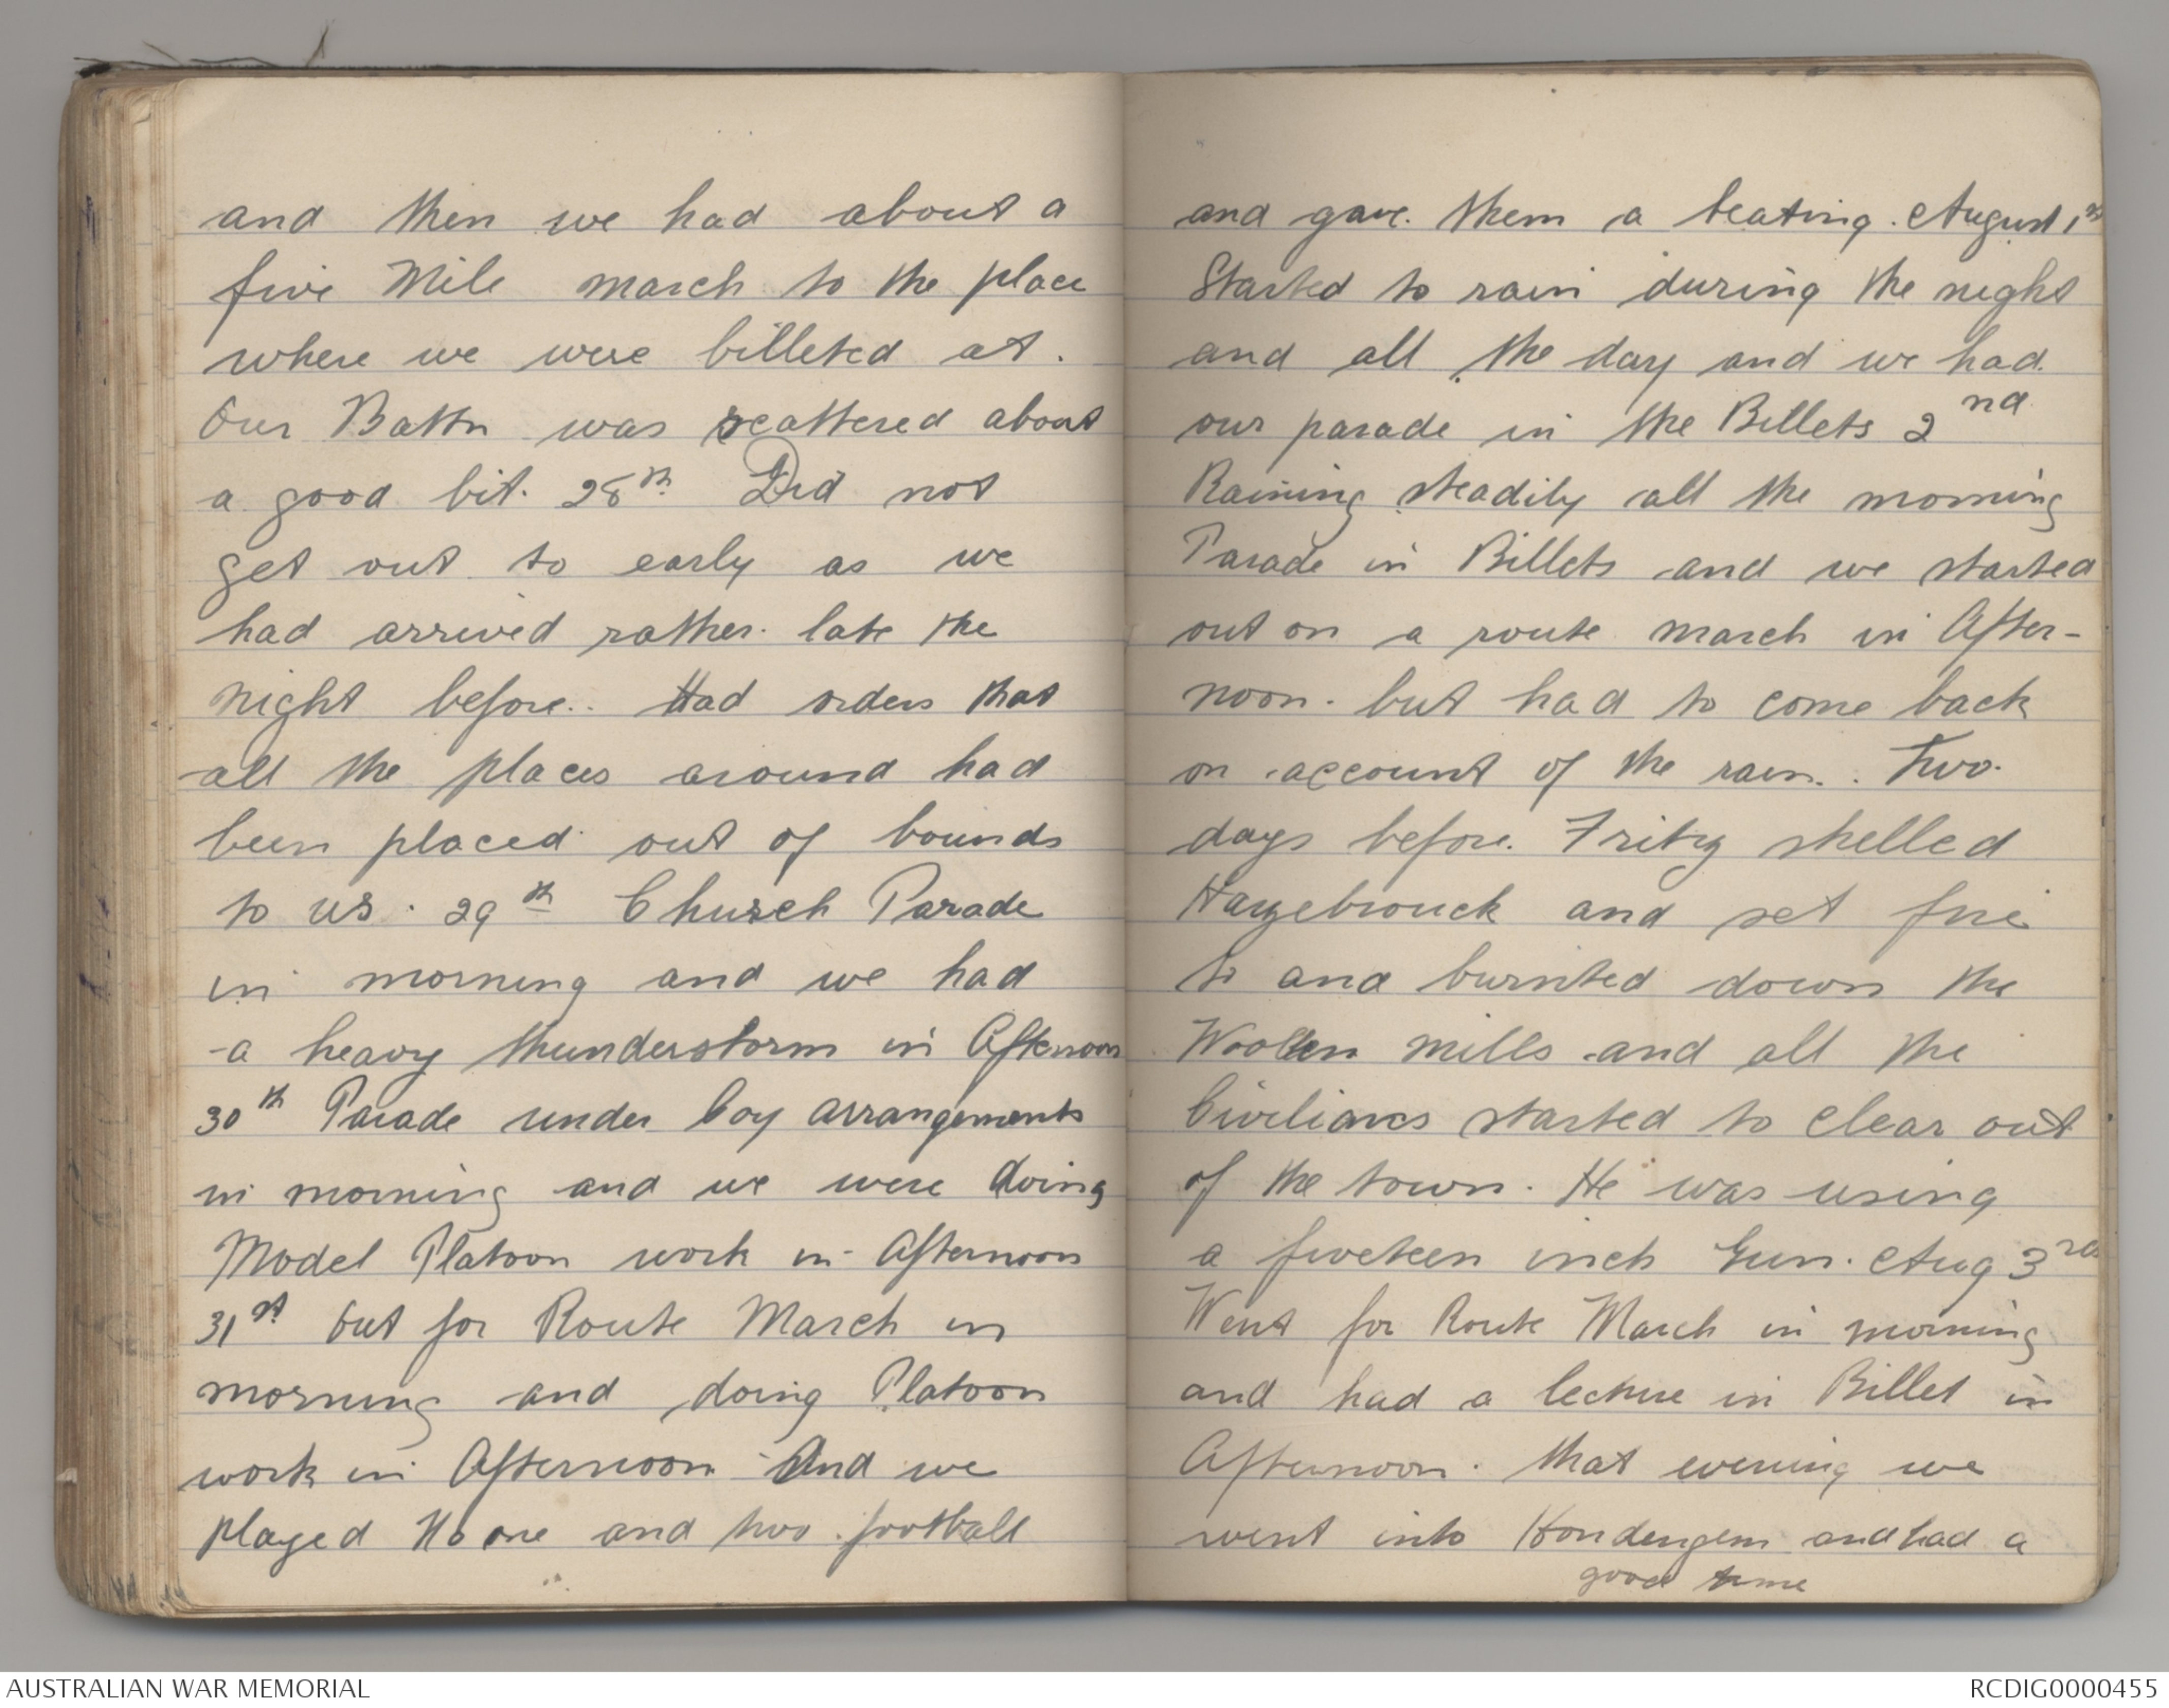 and then we had about a
five Mile march to the place
where we were billeted at.
Our Battn was scattered about
a good bit. 28th Did not
get out to early as we
had arrived rather late the
night before. Had orders that
all the places around had
been placed out of bounds
to us. 29th Church Parade
in morning and we had
a heavy thunderstorm in Afternoon
30th Parade under Coy arrangements
in morning and we were doing
Model Platoon work in Afternoon
31st Out for Route March in
morning and doing Platoon
work in Afternoon And we
played No one and two football
and gave them a beating. August 1st
Started to rain during the night
and all the day and we had
our parade in the Billets 2nd
Raining steadily all the morning
Parade in Billets and we started
out on a route march in After-
noon. but had to come back
on account of the rain. Two
days before. Fritz shelled
Hazebrouck and set fire
to and burnted down the
Woollen mills and all the
Civilians started to clear out
of the town. He was using
a fiveteen inch Gun. Aug 3rd
Went for Route March in morning
and had a lecture in Billet in
Afternoon. that evening we
went into Hondengem and had a
good time
AUSTRALIAN WAR MEMORIAL
RCDIG0000455